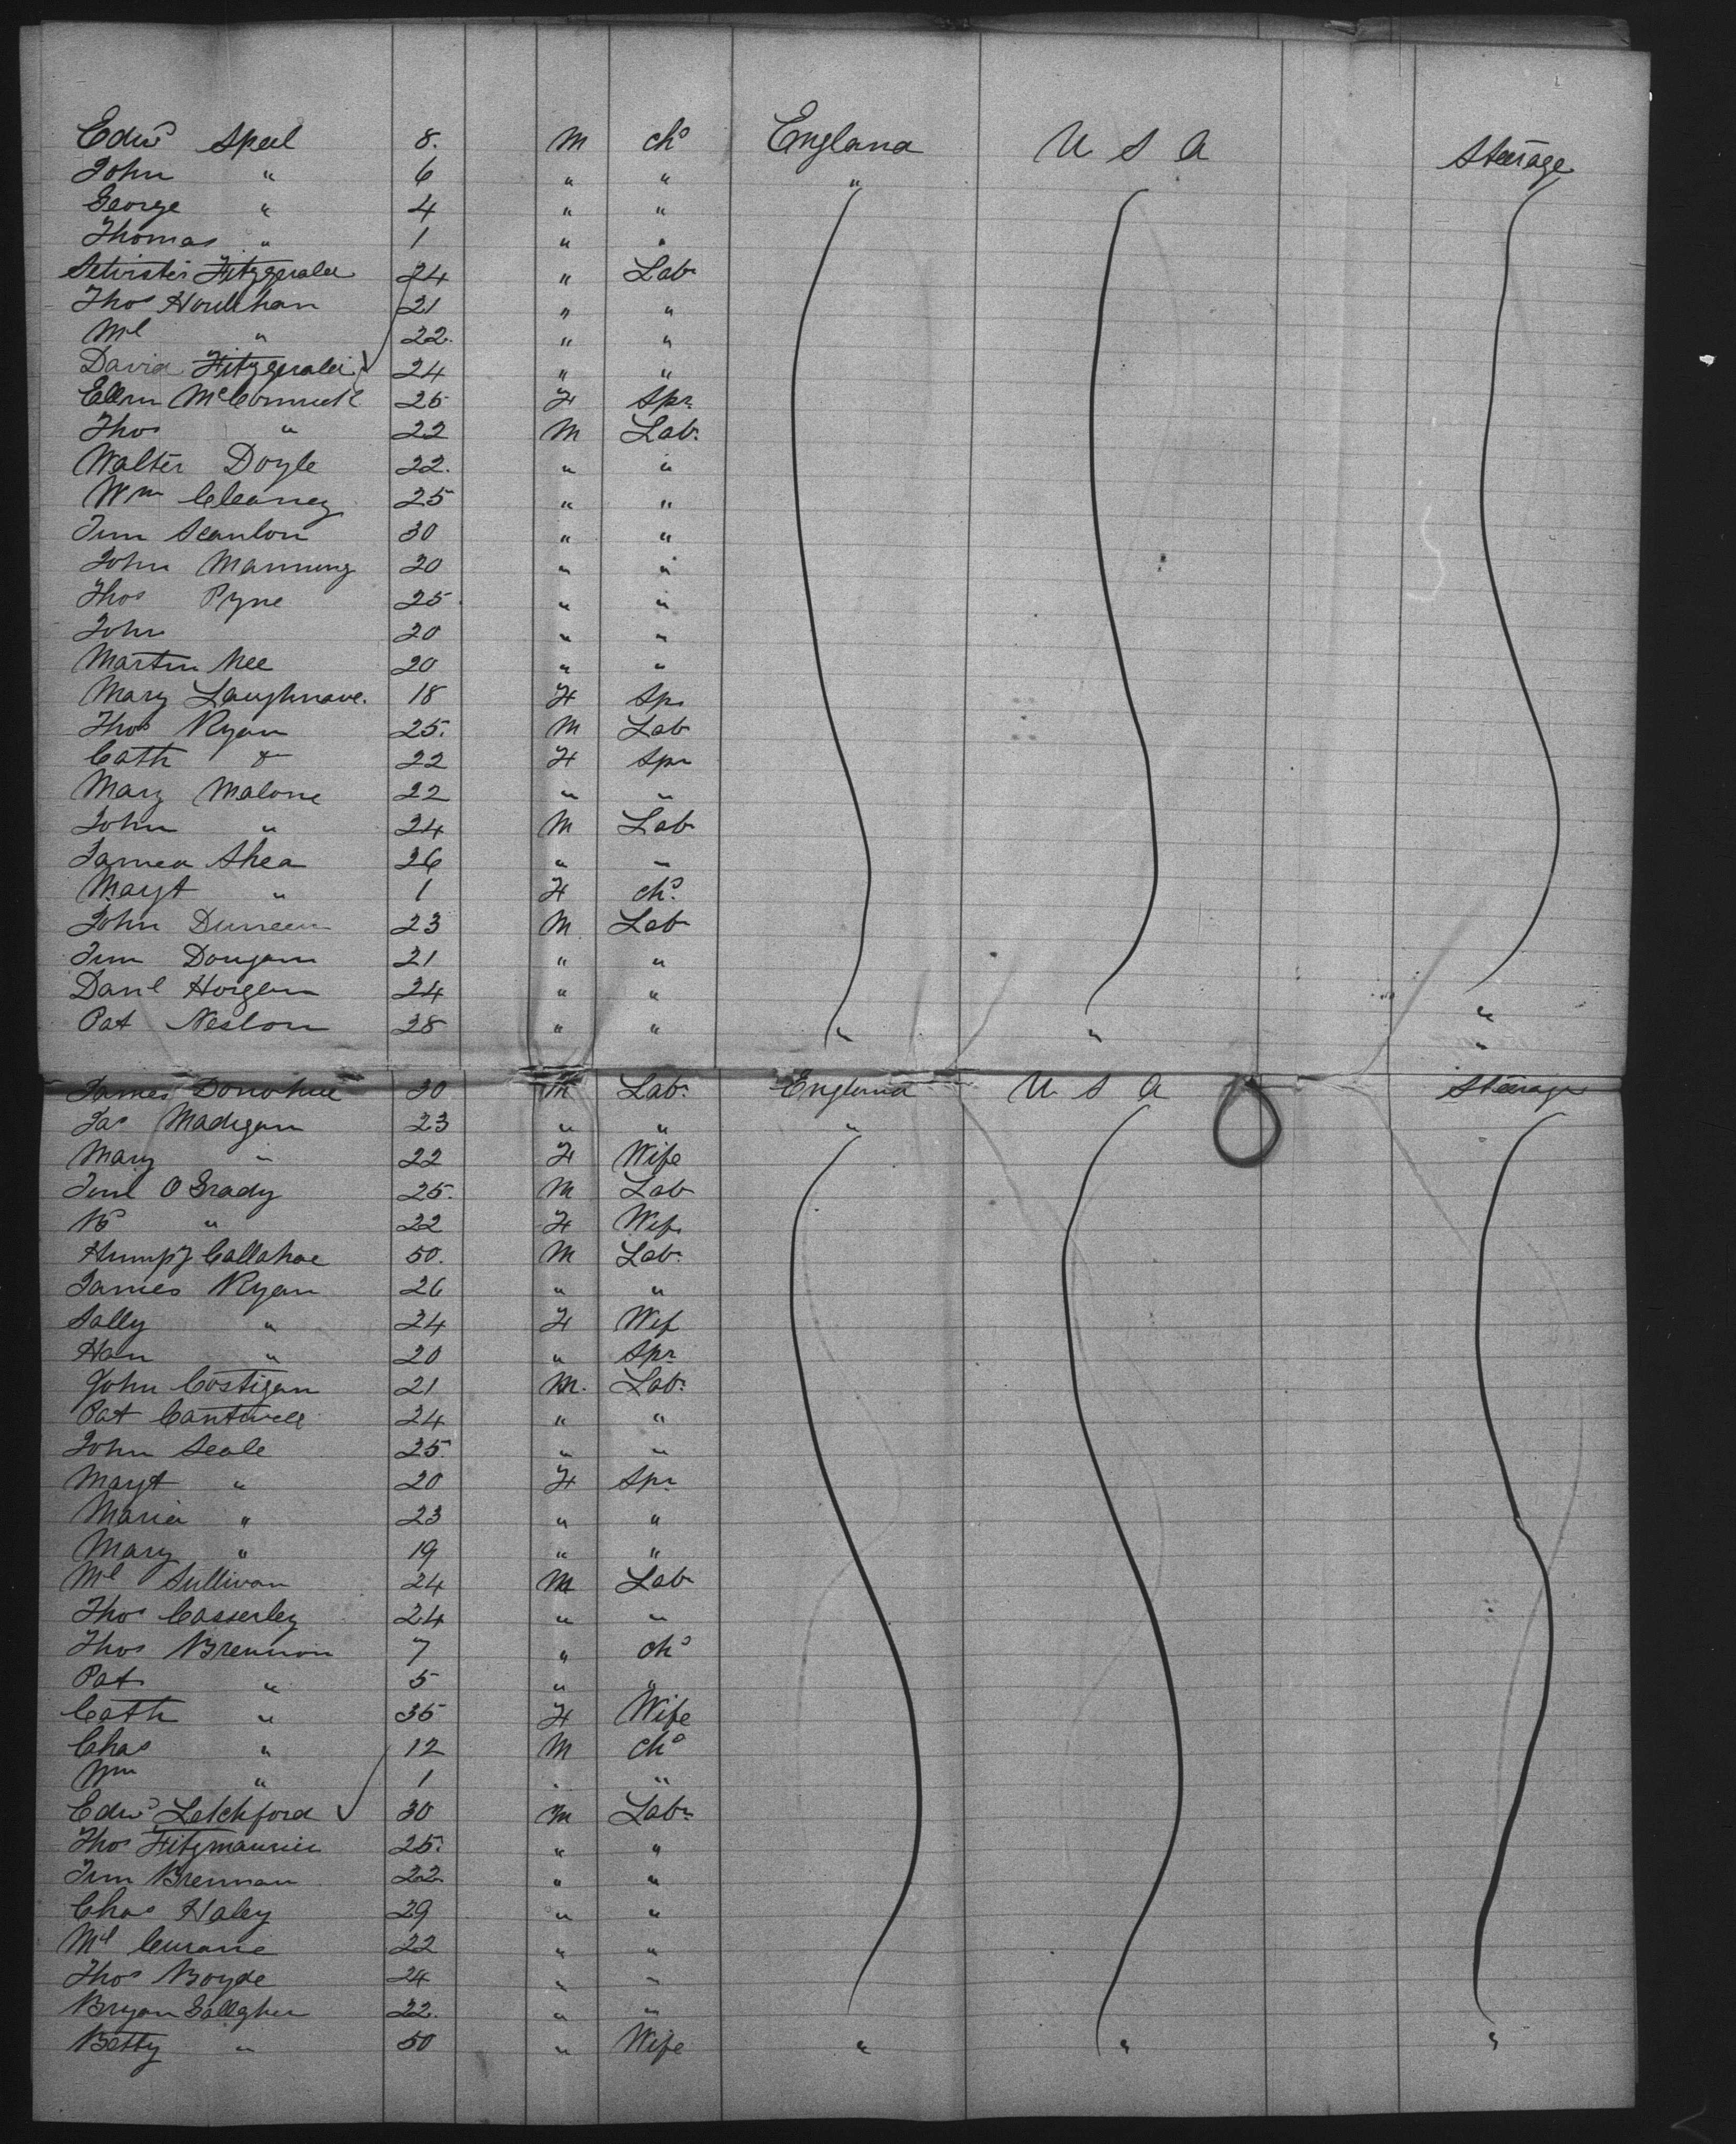 Edwd Speel 8. M chd England U S A Steerage
John " 6 " " "
George " 4 " "
Thomas " 1 " "
Fitzgerald 24 " Lab
Thos Houlihan 21 " "
Ml " 22. " "
David Fitzgerald 24 " "
Ellen McCormick 25 F Spr
Thos " 22 M Lab.
Walter Doyle 22. " "
Wm Cleaney 25 " "
Tim Scanlon 30 " "
John Manning 20 " "
Thos Pyne 25 " "
John 20 " "
Martin Nee 20 " "
Mary Laughnane. 18 F Spr
Thos Ryan 25. M Lab
Cath do 22 F Spr
Mary Malone 22 " "
John " 24 M Lab
James Shea 26 " "
Magt " 1 F chd.
John 23 M Lab
Tim 21 " "
Danl Horgan 24 " " "
Pat Neslon 28 " " " " "
James Donohue 30 M Lab. England U S A Steerage
Jas Madigan 23 " " "
Mary " 22 F Wife
O Grady 25. M Lab
" 22 F Wife
Humpy Callahae 50. M Lab.
James Ryan 26 " "
Sally " 24 F Wif
Han " 20 " Spr
John Costigan 21 M. Lab.
Pat Cantwell 24 " "
John Seale 25. " "
Magt " 20 F Spr
Maria " 23 " "
Mary " 19 " "
Ml Sullivan 24 M Lab
Thos Casserley 24 " "
Thos Brennon 7 " chd
Pat " 5 " "
Cath " 35 F Wife
Chas " 12 M chd
Wm " 1 " "
Edwd Letchford 30 M Lab.
Thos Fitzmaurice 25. " "
Tim Brennan 22 " "
Chas Haley 29 " "
Ml Currane 22 " "
Thos Boyde 24 " "
Bryan Gallagher 22. " "
Betty " 50 " Wife " " "